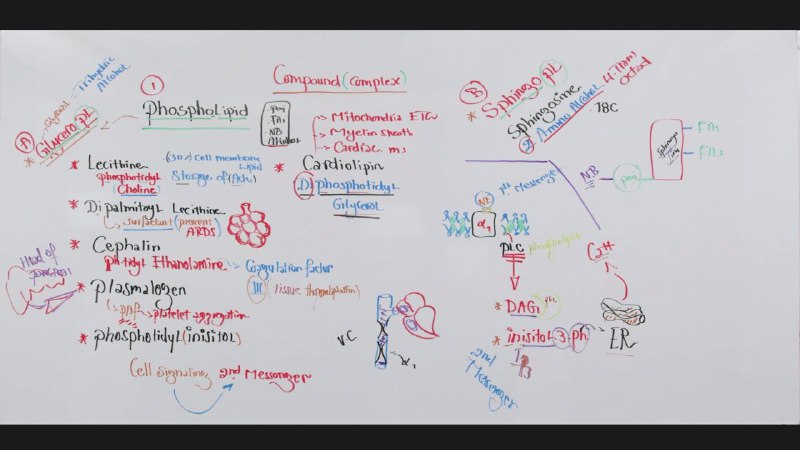 Compound (complex)
1
phospholipid
Trihydric Alcohol
A
Glycero PL
pm
FAs
NB
Alcohol
Mitochondria ETC
Myelin sheath
Cardiac ms
* Lecithine
phosphotidyl Choline
(50%) cell membrane Lipid
Storage of
* Dipalmitoyl Lecithine
surfactant (prevent ARDS)
* Cephalin
ph-tidyl Ethanolamine
Coagulation factor
III (tissue thromboplastin)
* plasmalogen
PAF platelet aggregation
* phosphotidyl (inisitol)
Cell signaling 2nd Messenger
Head of
* Cardiolipin
Di phosphotidyl
Glycerol
V.C
α1
B
* Sphingo PL
Sphingosine
18C
Amino Alcohol
4-Trans
NB
FAs
FAs
1st Messenger
NE
α1
PLC
phospholipase C
* DAG
* inisitol-3-ph
IP3
2nd Messenger
ER